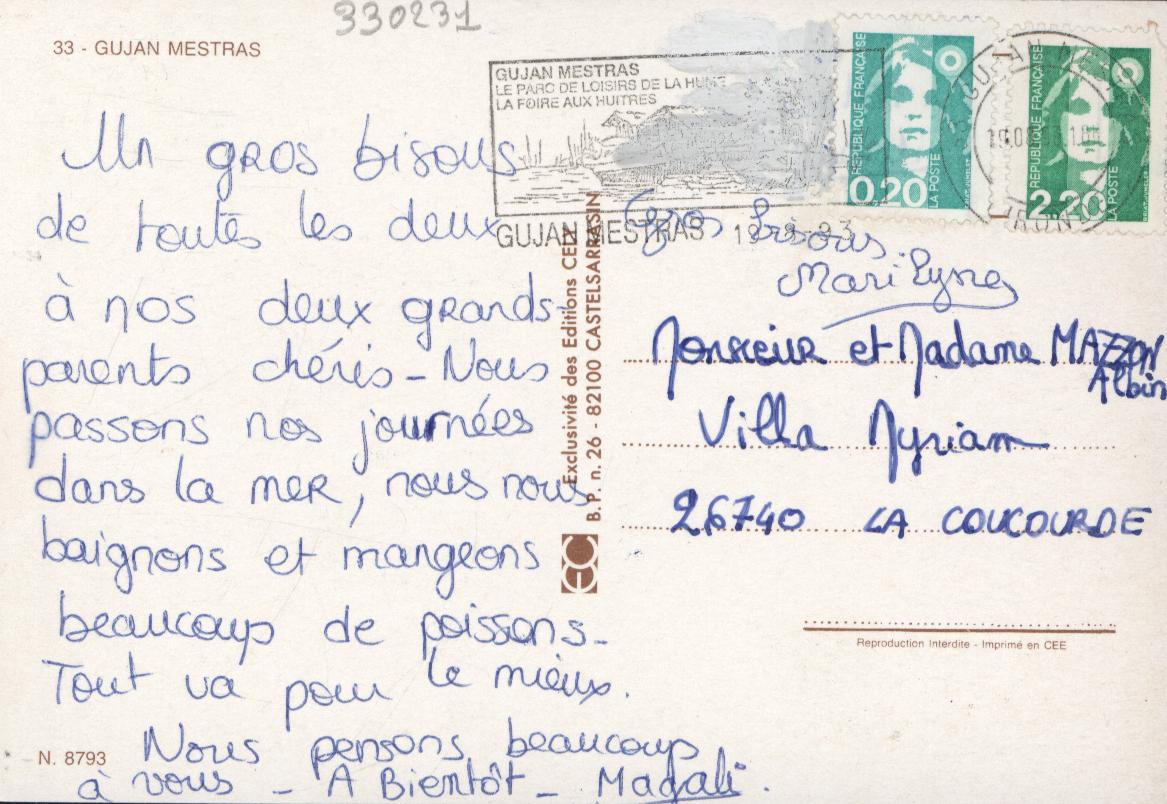 330231
33 - GUJAN MESTRAS
GUJAN MESTRAS
LE PARC DE LOISIRS DE LA HUME
LA FOIRE AUX HUITRES
GUJAN MESTRAS 19-8-93
REPUBLIQUE FRANÇAISE
0,20
LA POSTE
REPUBLIQUE FRANÇAISE
2,20
LA POSTE
Un gros bisous
de toutes les deux
à nos deux grands-
parents chéris - Nous
passons nos journées
dans la mer, nous nous
baignons et mangeons
beaucoup de poissons -
Tout va pour le mieux.
Nous pensons beaucoup
à vous - A Bientôt - Magali.
Gros bisous.
Marilyne
Exclusivité des Editions CELY
B.P. n. 26 - 82100 CASTELSARRASIN
Monsieur et Madame MAZZON
Albin
Villa Myriam
26740 LA COUCOURDE
Reproduction Interdite - Imprimé en CEE
N. 8793